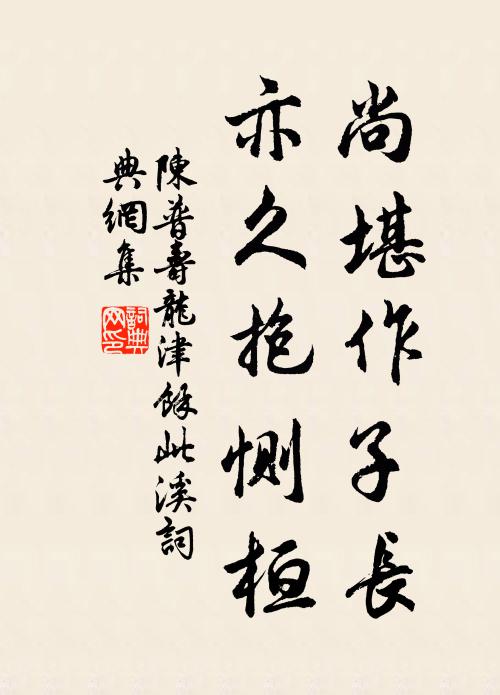 尚堪作子長
亦久抱惻桓
陳普壽龍津餘此溪詞
典網集
詞典網印